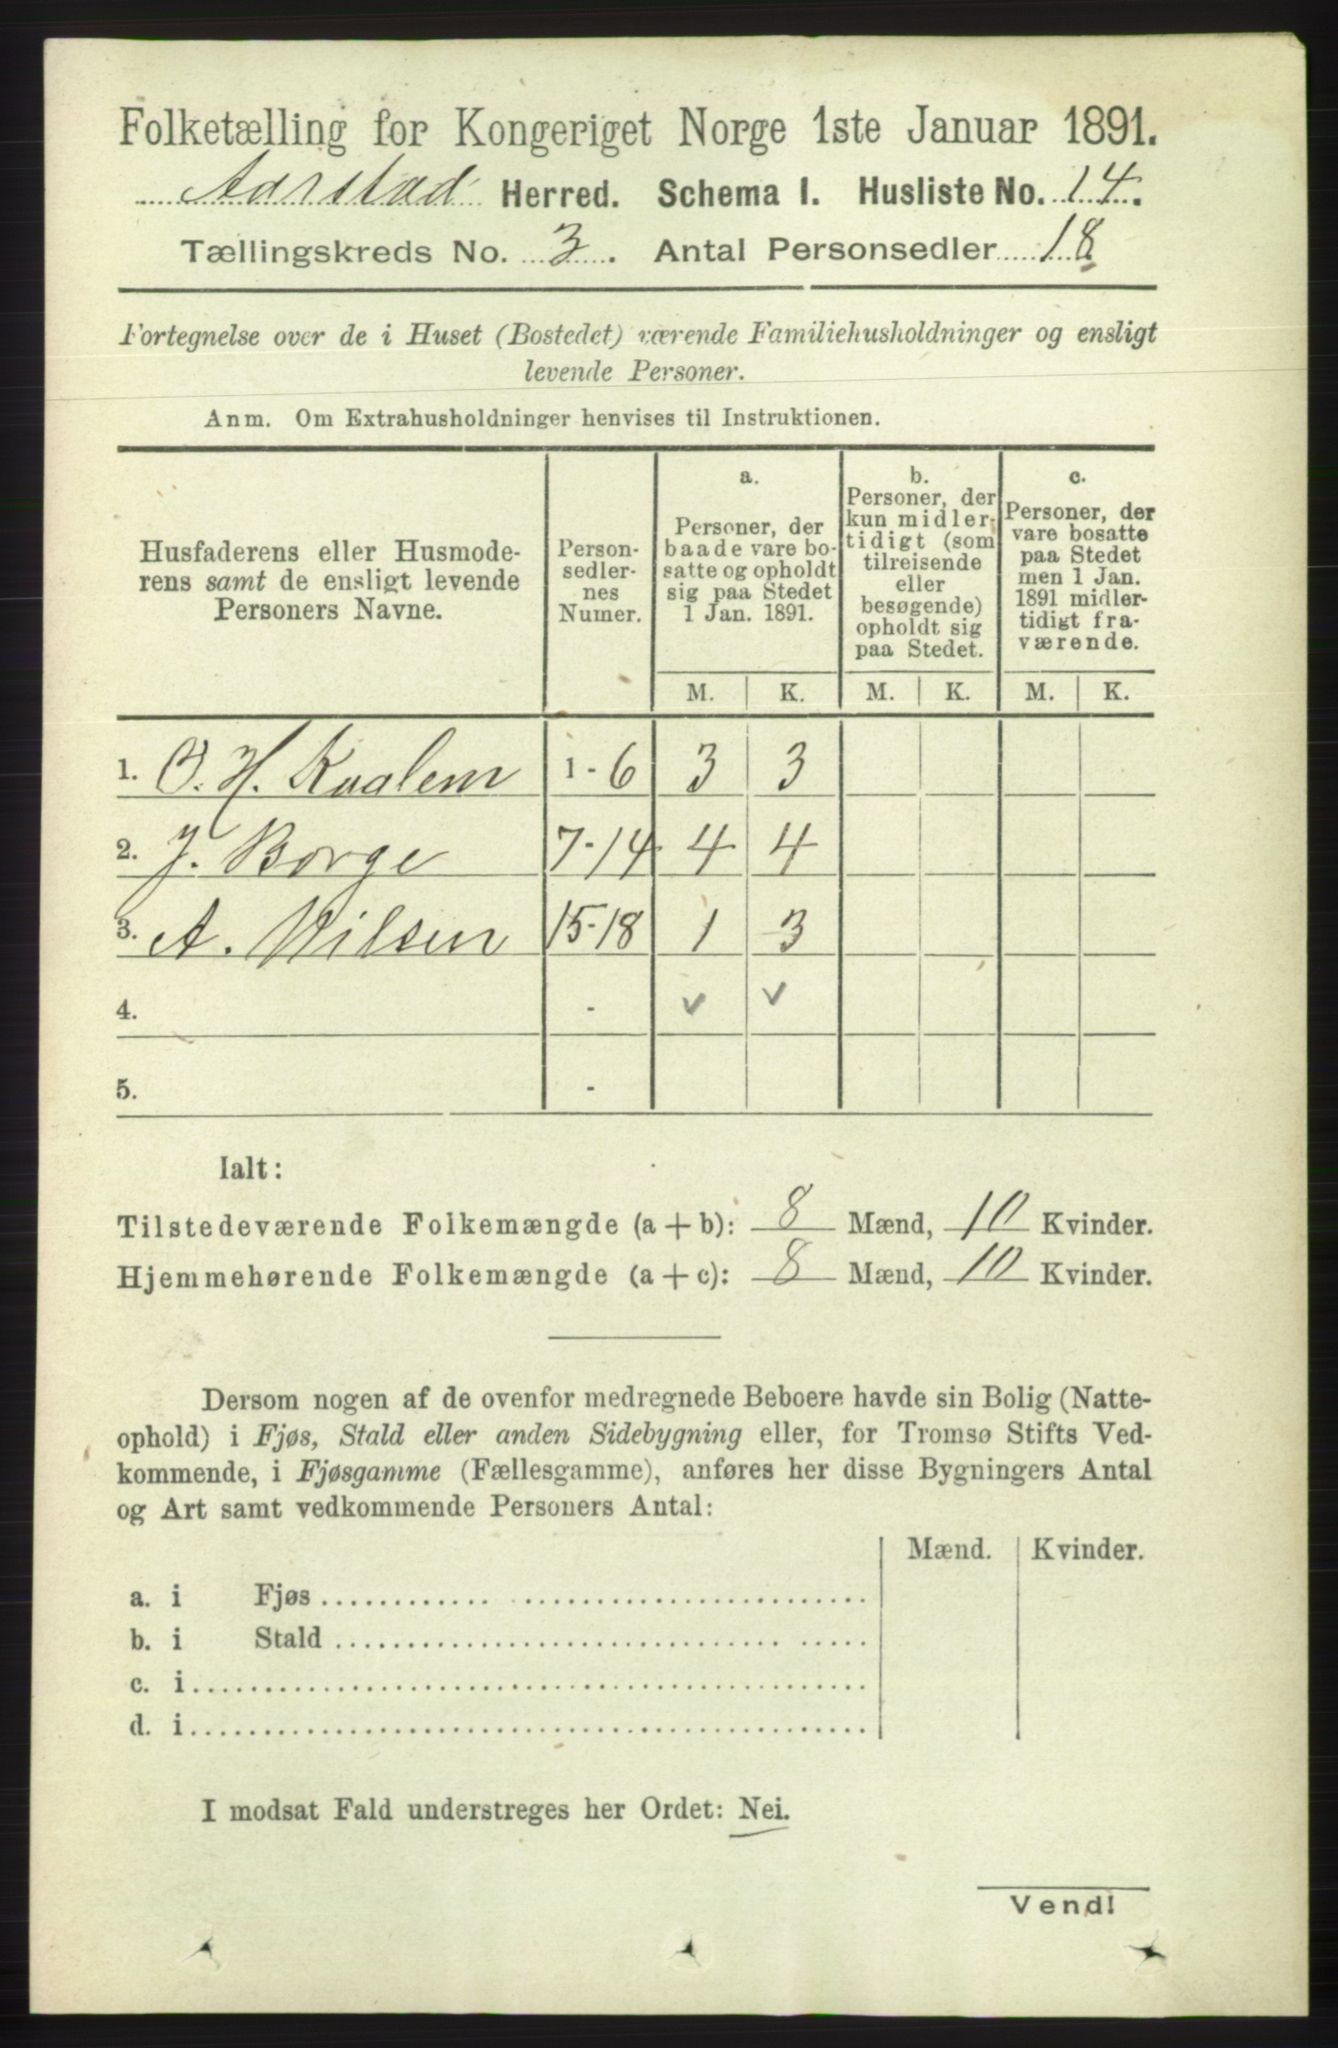 Folketælling for Kongeriget Norge 1ste Januar 1891.
Aarstad Herred. Schema I. Husliste No. 14.
Tællingskreds No. 3. Antal Personsedler 18
Fortegnelse over de i Huset (Bostedet) værende Familiehusholdninger og ensligt
levende Personer.
Anm. Om Extrahusholdninger henvises til Instruktionen.
Husfaderens eller Husmode-
rens samt de ensligt levende
Personers Navne.
Person-
sedler-
nes
Numer.
a.
Personer, der
baade vare bo-
satte og opholdt
sig paa Stedet
1 Jan. 1891.
b.
Personer, der
kun midler-
tidigt (som
tilreisende
eller
besøgende)
opholdt sig
paa Stedet.
c.
Personer, der
vare bosatte
paa Stedet
men 1 Jan.
1891 midler-
tidigt fra-
værende.
M. K. M. K. M. K.
1. O. H. Kaalem 1 - 6 3 3
2. J. Borge 7 - 14 4 4
3. A. Nilsen 15 - 18 1 3
4. - ✓ ✓
5. -
Ialt:
Tilstedeværende Folkemængde (a + b): 8 Mænd, 10 Kvinder.
Hjemmehørende Folkemængde (a + c): 8 Mænd, 10 Kvinder.
Dersom nogen af de ovenfor medregnede Beboere havde sin Bolig (Natte-
ophold) i Fjøs, Stald eller anden Sidebygning eller, for Tromsø Stifts Ved-
kommende, i Fjøsgamme (Fællesgamme), anføres her disse Bygningers Antal
og Art samt vedkommende Personers Antal:
Mænd. Kvinder.
a. i Fjøs
b. i Stald
c. i
d. i
I modsat Fald understreges her Ordet: Nei.
Vend!